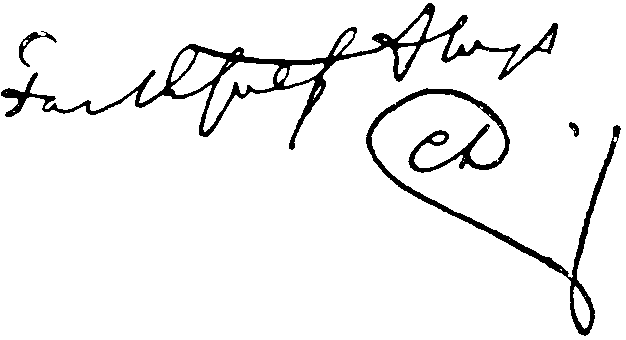 Faithfully Always
CD